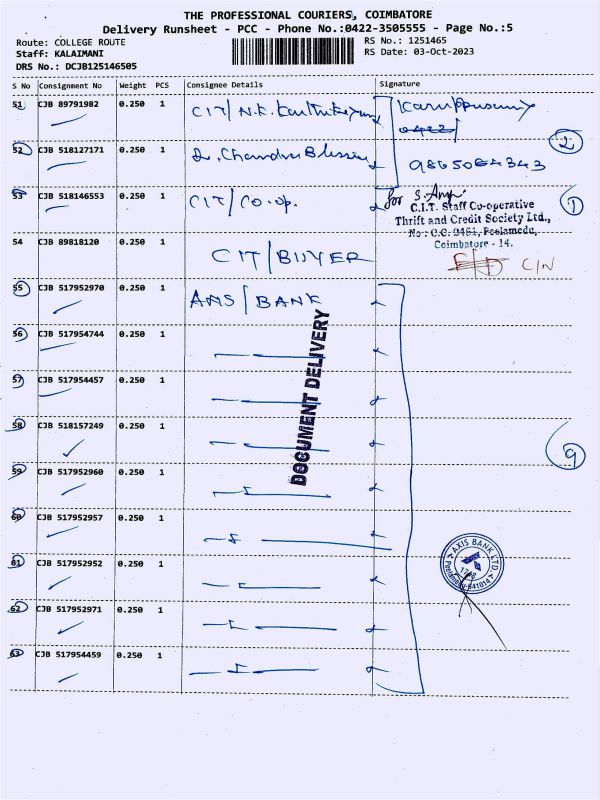 THE PROFESSIONAL COURIERS, COIMBATORE
Delivery Runsheet - PCC - Phone No.:0422-3505555 - Page No.:5
Route: COLLEGE ROUTE
RS No.: 1251465
Staff: KALAIMANI
RS Date: 03-Oct-2023
DRS No.: DCJB125146505
S No Consignment No Weight PCS Consignee Details Signature
51 CJB 89791982 0.250 1 CIT/N.K. Karuppusamy
52 CJB 518127171 0.250 1 2
53 CJB 518146553 0.250 1 CIT/CO.OP. for 1
C.I.T. Staff Co-operative
Thrift and Credit Society Ltd.,
No : C.C. 2451, Peelamedu,
Coimbatore - 14.
54 CJB 89818120 0.250 1 CIT/BUYER C/N
55 CJB 517952970 0.250 1 /BANK
56 CJB 517954744 0.250 1
57 CJB 517954457 0.250 1
58 CJB 518157249 0.250 1 9
59 CJB 517952960 0.250 1
60 CJB 517952957 0.250 1
61 CJB 517952952 0.250 1
62 CJB 517952971 0.250 1
63 CJB 517954459 0.250 1
DOCUMENT DELIVERY
AXIS BANK LTD
Peelamedu-641014